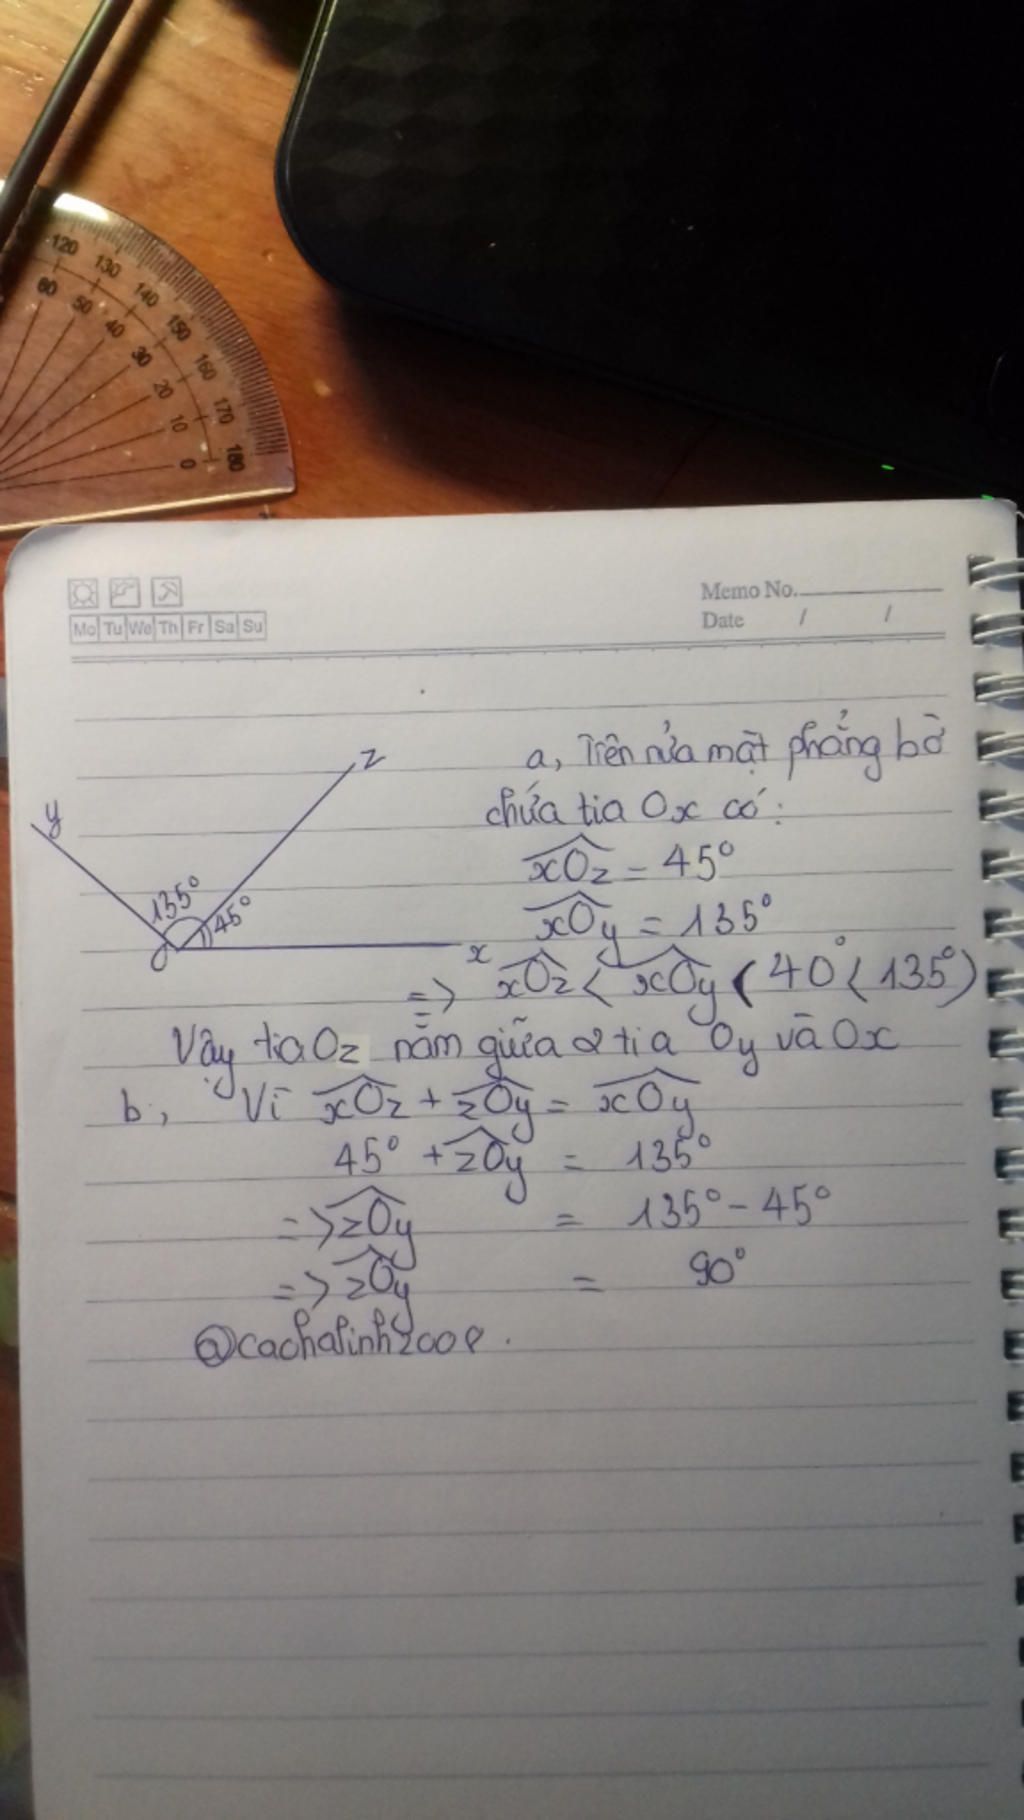 120 130 140 150 160 170 180
60 50 40 30 20 10 0
Memo No.
Mo Tu We Th Fr Sa Su
Date / /
y
z
135°
45°
O
x
a, Trên nửa mặt phẳng bờ
chứa tia Ox có:
xOz = 45°
xOy = 135°
=> xOz < xOy (40° < 135°)
Vậy tia Oz nằm giữa 2 tia Oy và Ox
b, Vì xOz + zOy = xOy
45° + zOy = 135°
=> zOy = 135° - 45°
=> zOy = 90°